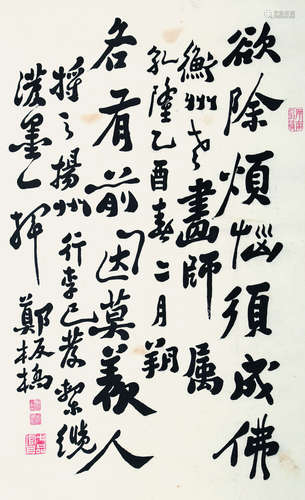 欲除煩惱須成佛
衡州老畫師属
乾隆乙酉春二月朔
各有前因莫羨人
將之揚州行李已發繫纜
潑墨一揮
鄭板橋